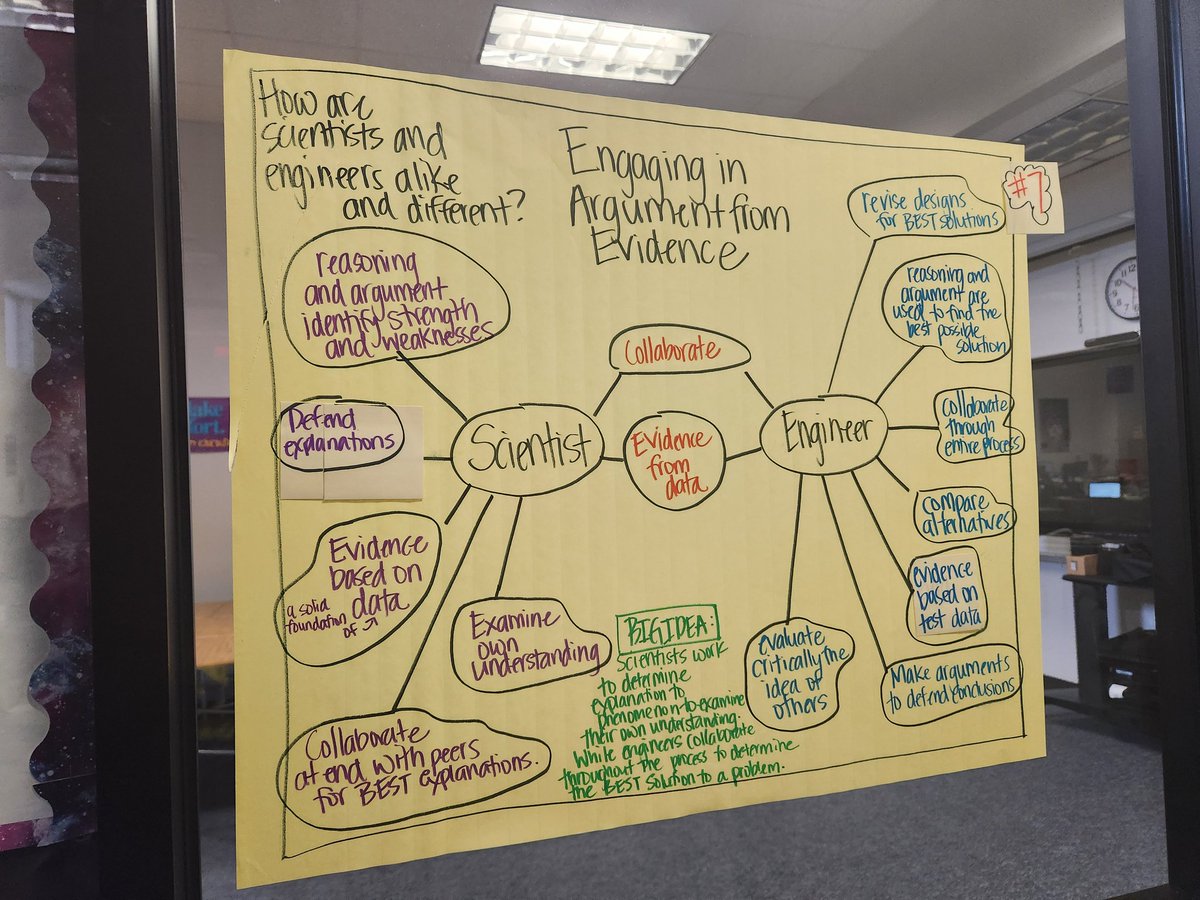 How are
scientists and
engineers alike
and different?
Engaging in
Argument from
Evidence
#7
reasoning
and argument
identify strength
and weaknesses
Defend
explanations
Evidence
based on
data
a solid
foundation
of
Collaborate
at end with peers
for BEST explanations.
Examine
own
understanding
Scientist
Collaborate
Evidence
from
data
Engineer
revise designs
for BEST solutions
reasoning and
argument are
used to find the
best possible
solution
collaborate
through
entire process
compare
alternatives
evidence
based on
test data
Make arguments
to defend conclusions
evaluate
critically the
idea of
others
BIG IDEA:
Scientists work
to determine
explanation to
phenomenon to examine
their own understanding.
While engineers collaborate
throughout the process to determine
the BEST solution to a problem.